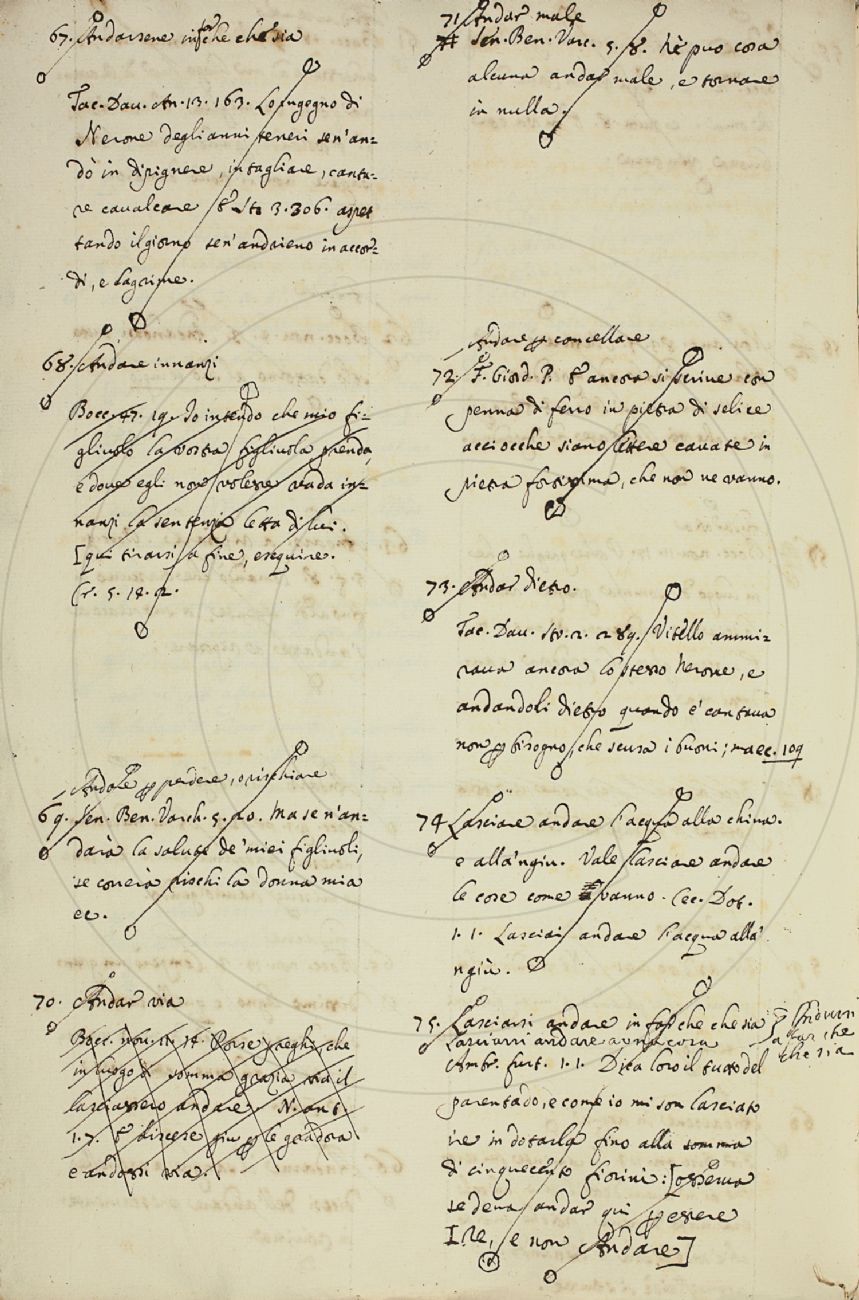 67. Andarsene in far che che sia
Tac. Dav. An. 13. 163. Lo ingegno di
Nerone degli anni teneri sen'an=
dò in dipignere, intagliare, canta-
re cavalcare & Sto 3. 306. aspet
tando il giorno sen'andaieno in accor=
di, e lagrime.
68. Andare innanzi
Bocc. 47. 19. Io intendo che mio fi=
gliuolo la vostra figliuola prenda,
e dove egli non volesse vada in=
nanzi la sentenzia letta di lui.
[qui tirarsi a fine, eseguire.
Cr. 5. 18. 2.
Andare per perdere, o rischiare
69. Sen. Ben. Varch. 5. 20. Ma se n'an=
darà la salute de' miei figliuoli,
se correrà rischi la donna mia
ec.
70. Andar via
Bocc. nov. 11. 14. Porse prieghi che
in luogo di somma grazia via il
lasciassero andare. N. ant.
1. 7. & discese giu per le gradora
e andossi via.
71 Andar male
Sen. Ben. Varc. 5. 8. Nè può cosa
alcuna andar male, e tornare
in nulla.
Andare per cancellare
72. F. Giord. P. & ancora si scrive con
penna di ferro in pietra di selice
acciocche siano lettere cavate in
pietra fortissima, che non ne vanno.
73. Andar dietro.
Tac. Dav. Sto. 2. 289. Vitello ammi=
rava ancora lo stesso Nerone, e
andandoli dietro quando e' cantava
non per bisogno, che scusa i buoni; ma ec. 109
74 Lasciare andare l'acqua alla china.
e alla'ngiu. Vale lasciare andare
le cose come vanno. Cec. Dot.
1. 1. Lasciai andare l'acqua alla'
ngiù.
75. Lasciarsi andare in far che che sia
Lasciarsi andare a una cosa
Indursi
a far che
che sia
Ambr. furt. 1. 1. Dita loro il tutto del
parentado, e come io mi son lasciato
ire in dotarla fino alla somma
di cinquecento fiorini: [osserva
se deva andar qui per essere
Ire, e non Andare]